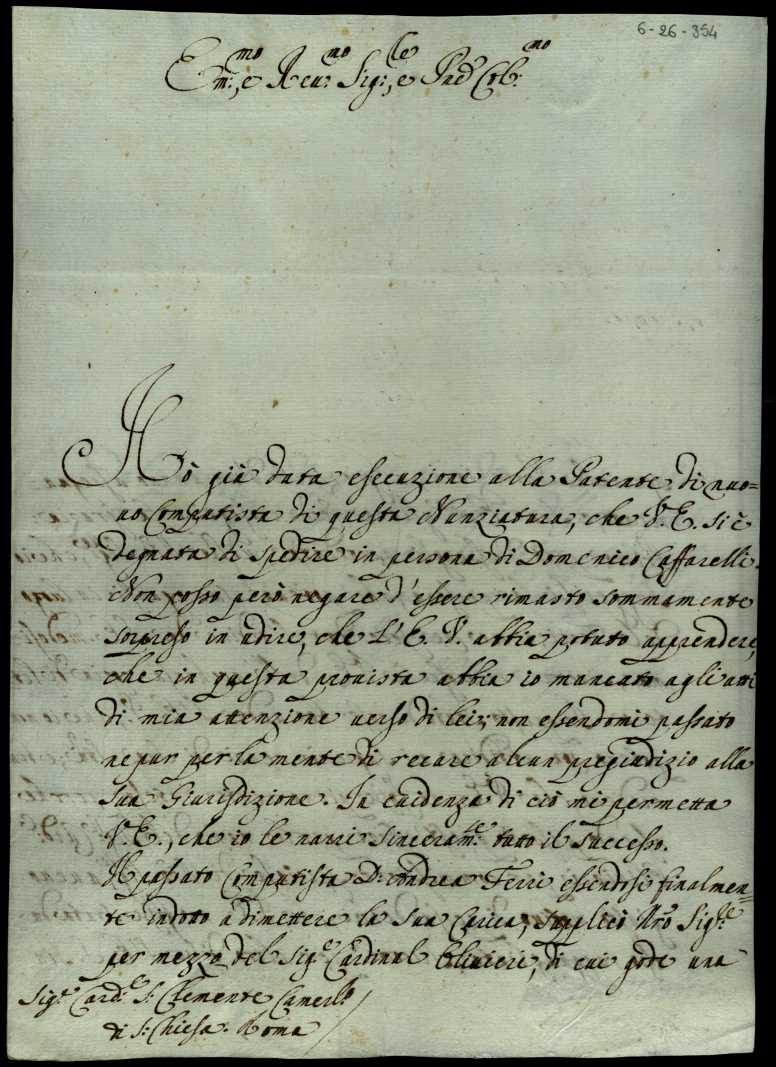 6-26-354
Em:mo, e Reu:mo Sig:re, e Pad Col:mo
Hò già data esecuzione alla Patente di nuo=
uo Computista di questa Nunziatura, che V. E. si è
degnata di spedire in persona di Domenico Caffarelli.
Non posso però negare d'essere rimasto sommamente
sorpreso in udire, che l'E. V. abbia potuto apprendere,
che in questa prouista abbia io mancato agli atti
di mia attenzione uerso di lei; non essendomi passato
nepur per la mente di recare alcun pregiudizio alla
sua Giurisdizione. In euidenza di ciò mi permetta
V. E., che io le narri sinceram:te tutto il successo.
Il passato Computista D: Andrea Ferri essendosi finalmen=
te indotto a dimettere la sua Carica, supplicò Nrõ Sig:re
per mezzo del Sig:e Cardinal Oliuieri, di cui gode una
Sig:e Card:e S: Clemente Camerl:o
di S: Chiesa. Roma